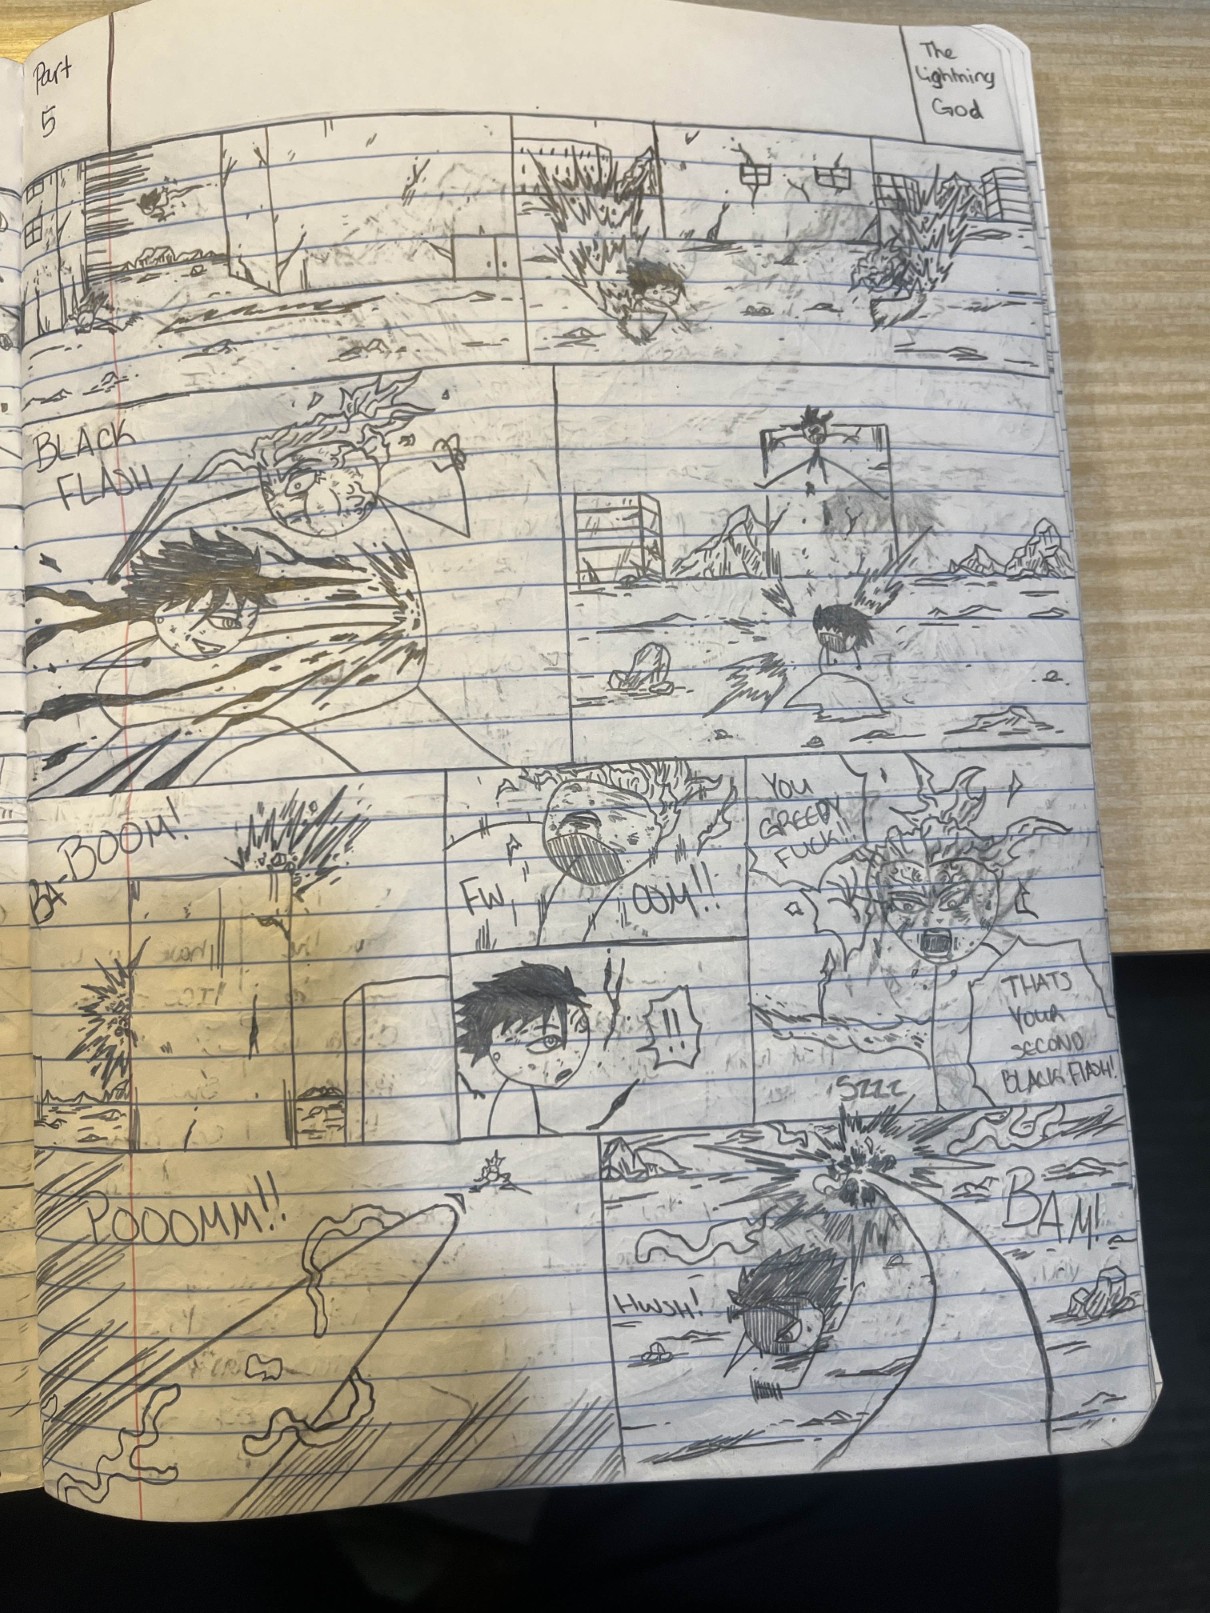 Part
5
The
Lightning
God
BLACK
FLASH
BA-BOOM!
FW
OOM!!
YOU
GREEDY
FUCK!!
!!
THATS
YOUR
SECOND
BLACK FLASH!
SZZZ
POOOMM!!
BAM!
HWSH!